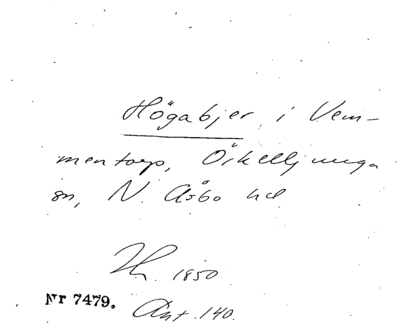 Högabjer i Vem-
mentorp, Örkelljunga
sn, N. Åsbo hd
Th. 1850
Nr 7479. Ant. 140.